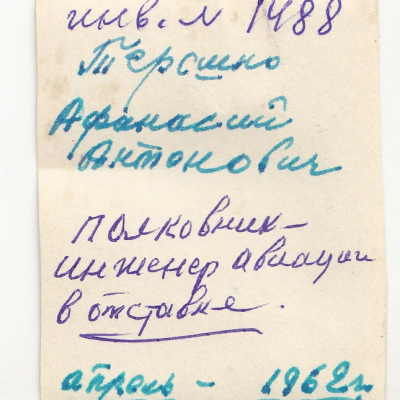 инв. № 1488
Терешно
Афанасий
Антонович
полковник-
инженер авиации
в отставке.
апрель - 1962 г.